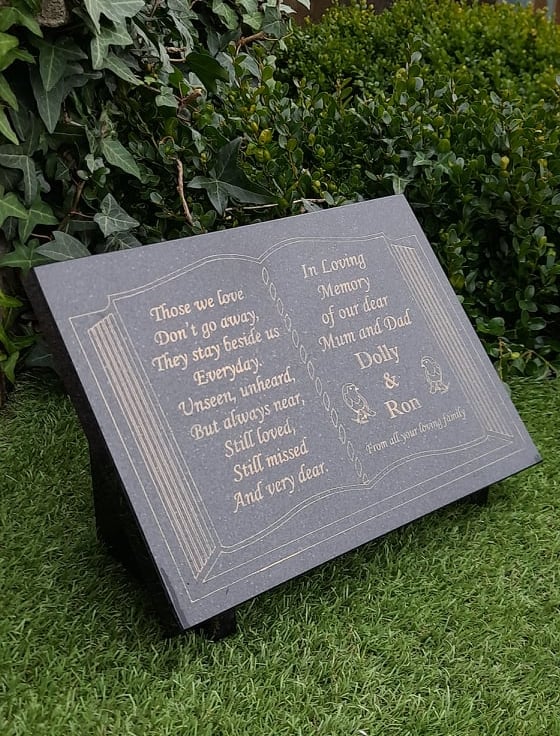 Those we love
Don't go away,
They stay beside us
Everyday.
Unseen, unheard,
But always near,
Still loved,
Still missed
And very dear.
In Loving
Memory
of our dear
Mum and Dad
Dolly
&
Ron
From all your loving family